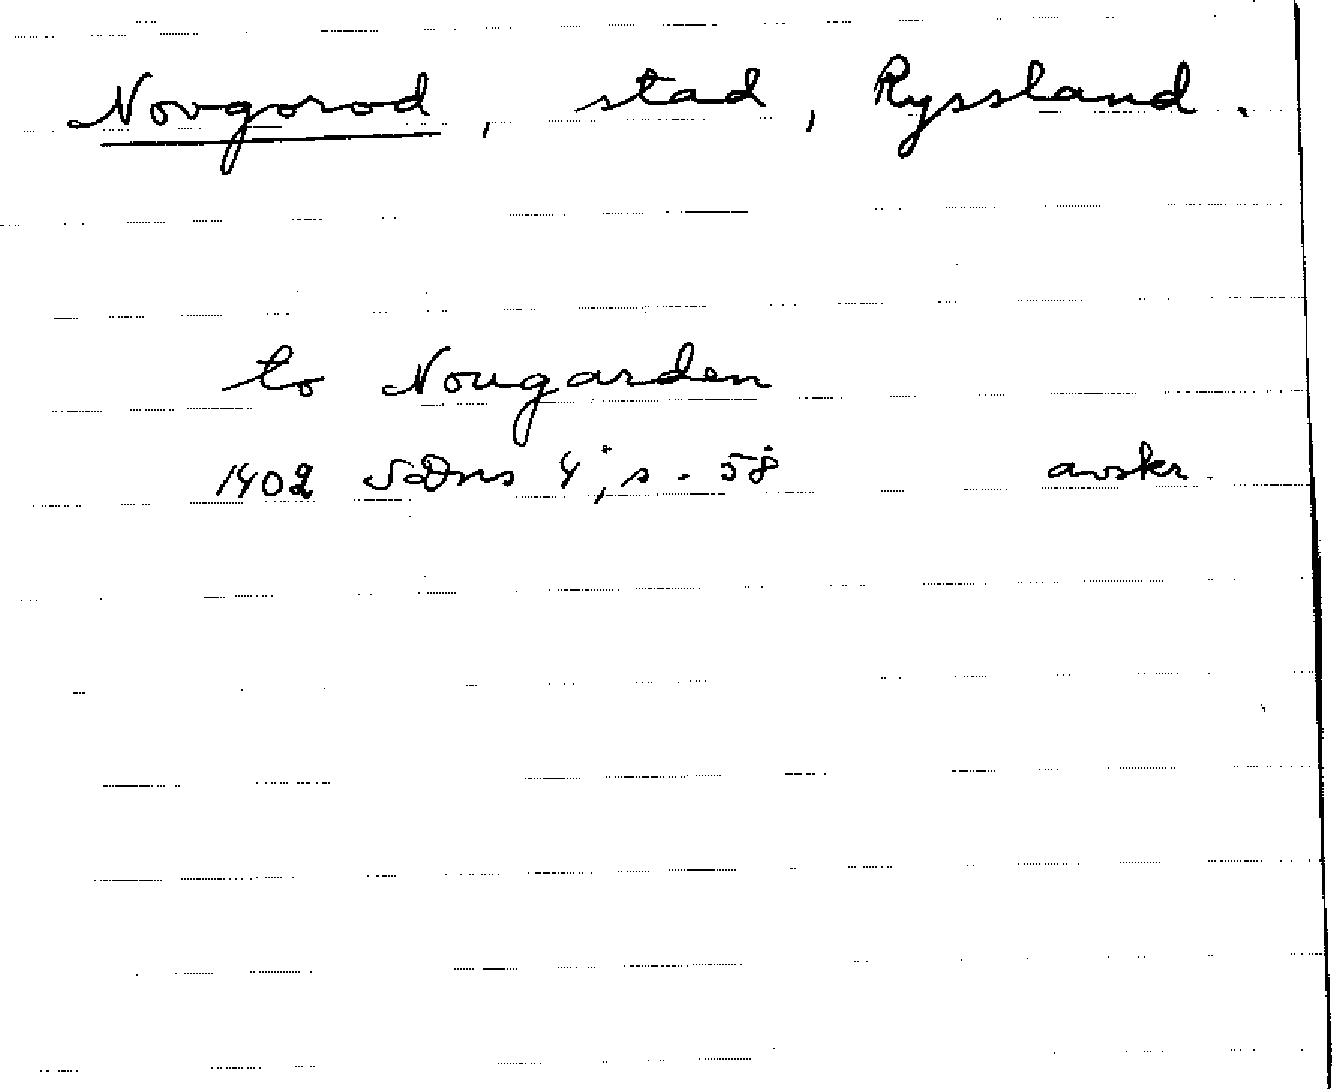 Novgorod, stad, Ryssland.
to Nougarden
1402 SDns 4; s. 58 avskr.